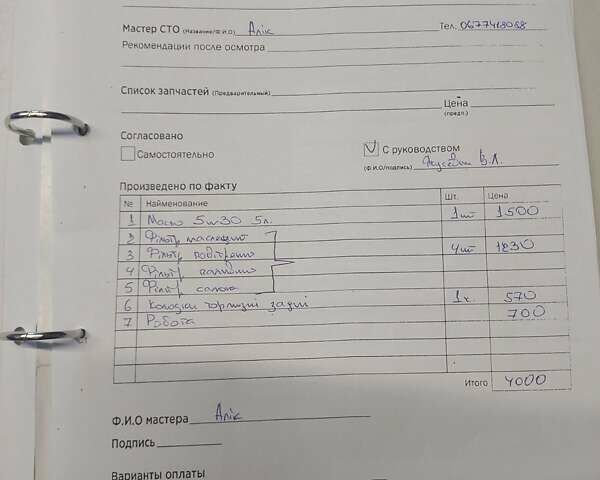 Мастер СТО (Название/Ф.И.О) Алік Тел.
Рекомендации после осмотра
Список запчастей (Предварительный)
Цена
(предп.)
Согласовано
Самостоятельно
С руководством
(Ф.И.О/подпись) В.Л.
Произведено по факту
№ Наименование Шт. Цена
1 Масло 5w30 5л. 1шт 1500
2 Фільтр масляний
3 Фільтр повітряно 4шт 1230
4 Фільтр
5 Фільтр салона
6 Колодки тормозні задні 1к. 570
7 Робота 700
Итого 4000
Ф.И.О мастера Алік
Подпись
Варианты оплаты